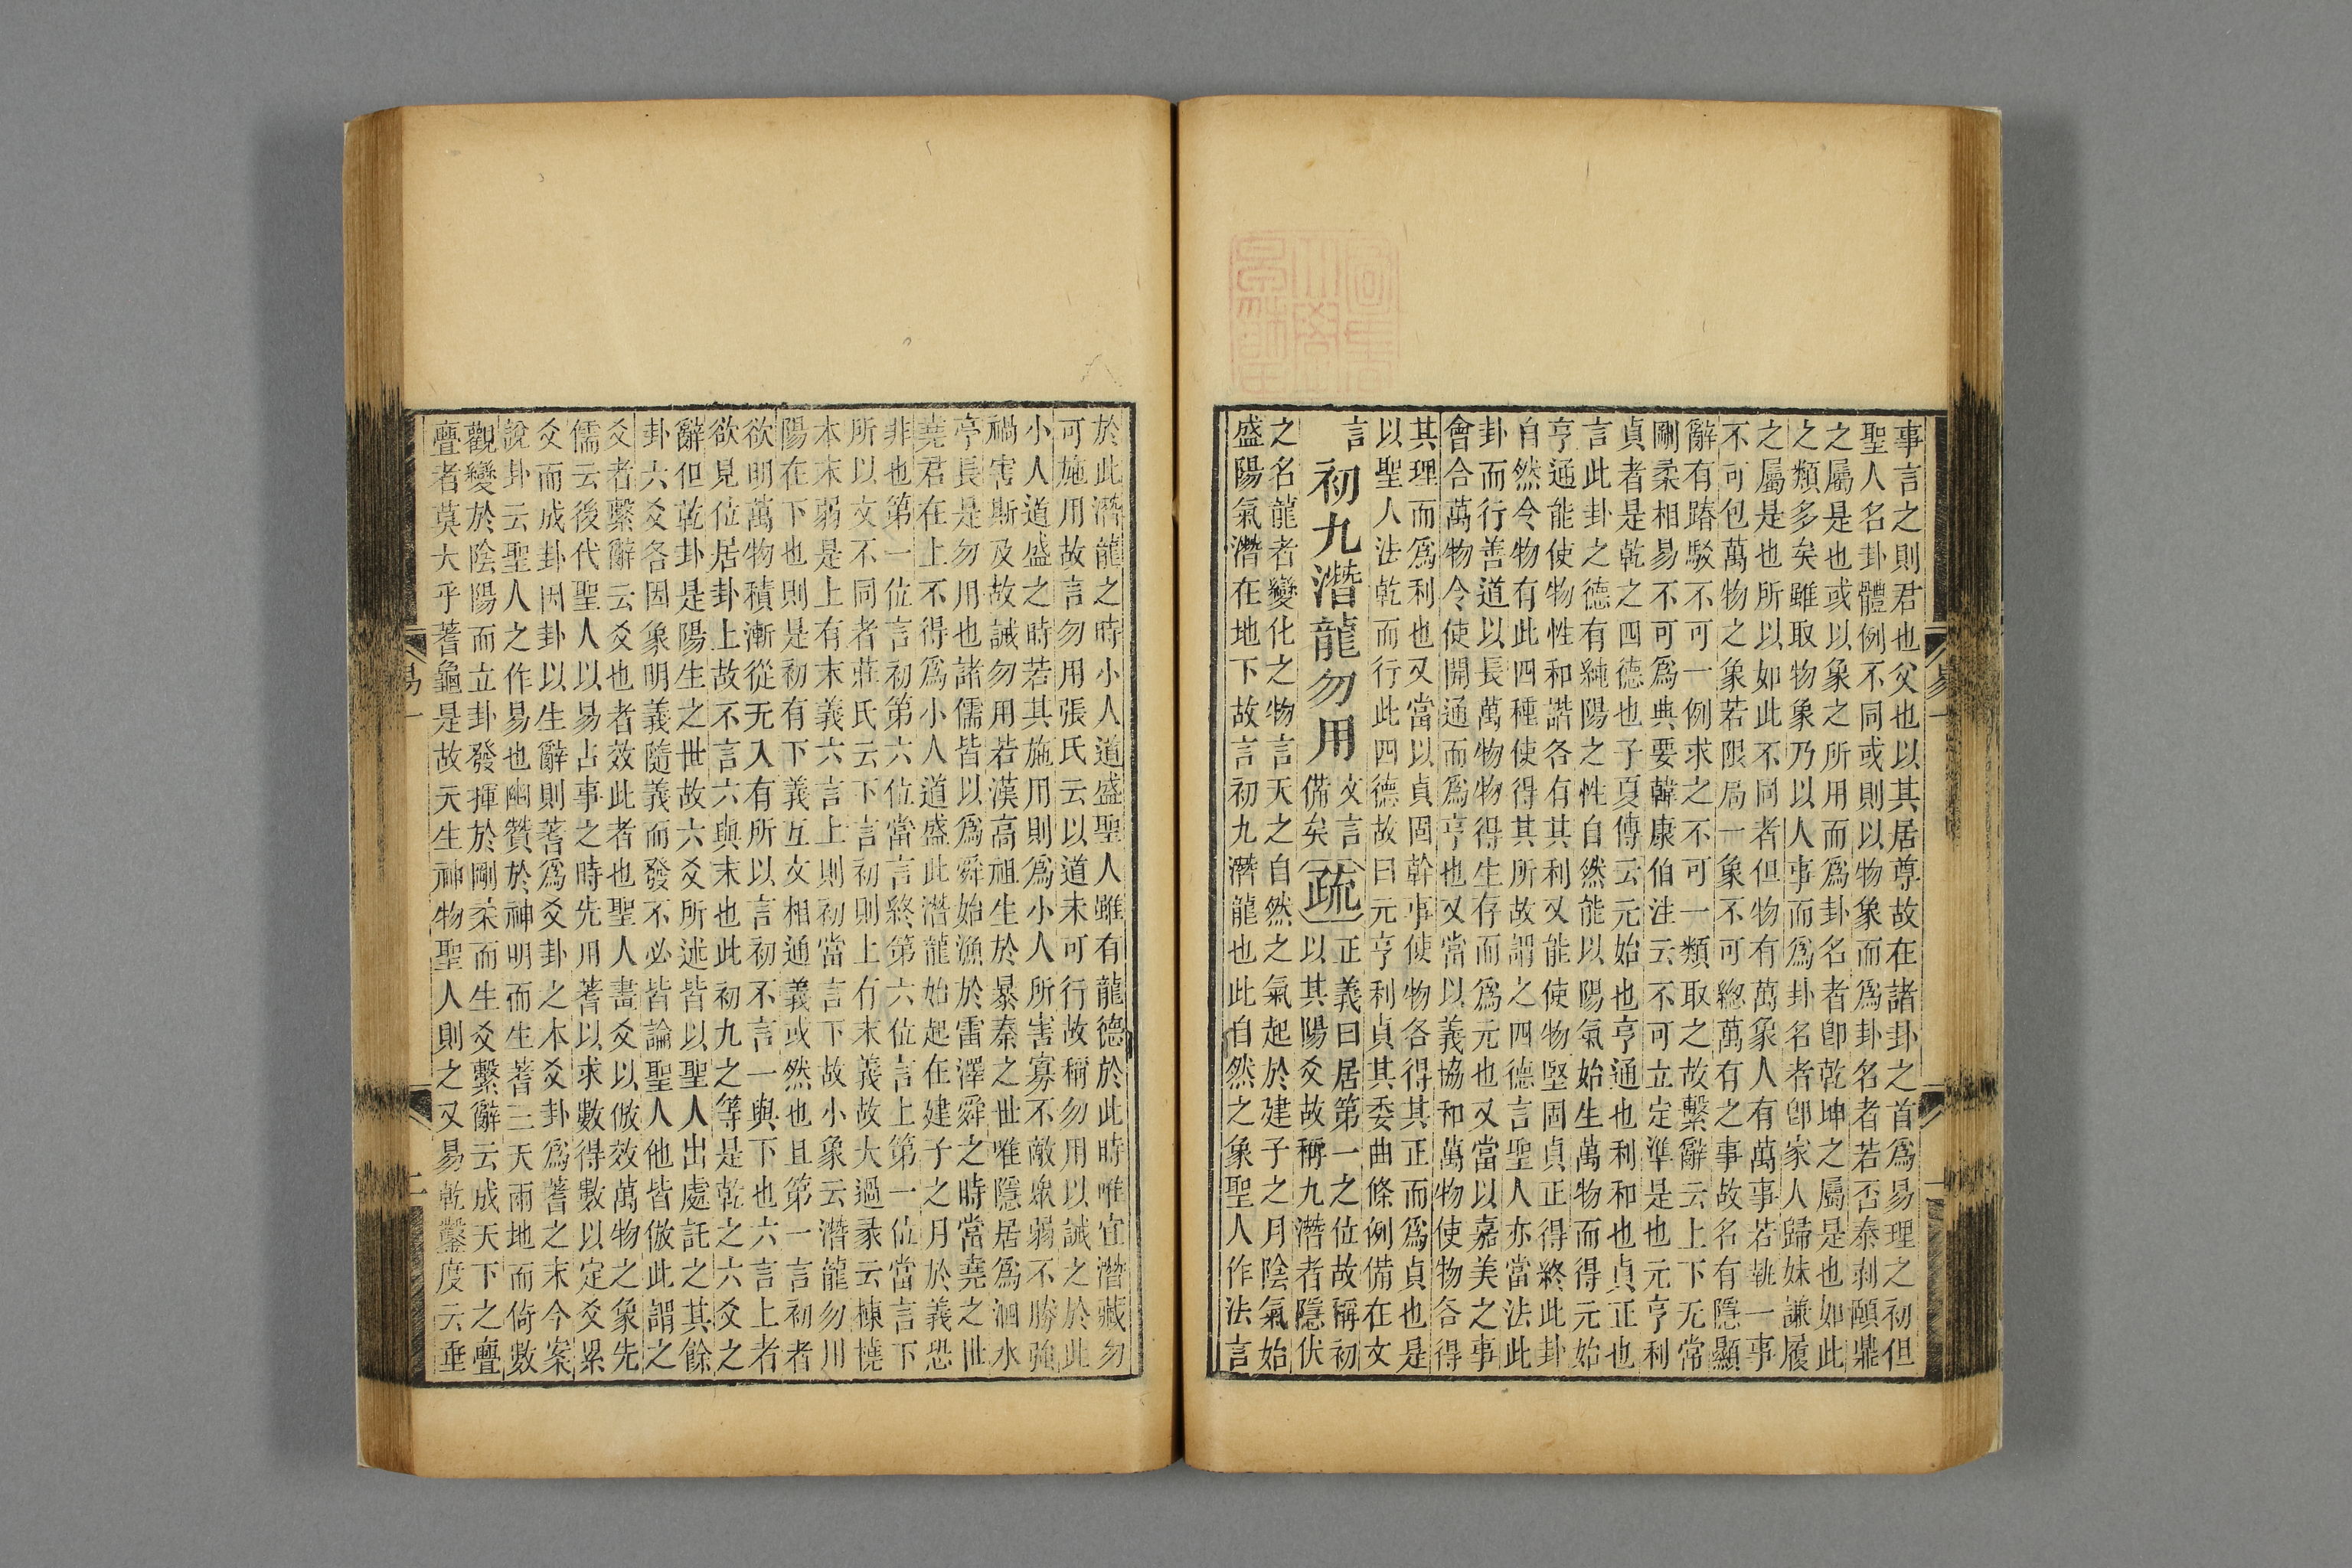 事言之則君也父也以其居尊故在諸卦之首爲易理之初但
聖人名卦體例不同或則以物象而爲卦名者若否泰剥頤鼎
之屬是也或以象之所用而爲卦名者卽乾坤之屬是也如此
之類多矣雖取物象乃以人事而爲卦名者卽家人歸妹謙履
之屬是也所以如此不同者但物有萬象人有萬事若執一事
不可包萬物之象若限局一象不可緫萬有之事故名有隱顯
辭有踳駮不可一例求之不可一類取之故繫辭云上下无常
剛柔相易不可爲典要韓康伯注云不可立定準是也元亨利
貞者是乾之四德也子夏傳云元始也亨通也利和也貞正也
言此卦之德有純陽之性自然能以陽氣始生萬物而得元始
亨通能使物性和諧各有其利又能使物堅固貞正得終此卦
自然令物有此四種使得其所故謂之四德言聖人亦當法此
卦而行善道以長萬物物得生存而爲元也又當以嘉美之事
會合萬物令使開通而爲亨也又當以義協和萬物使物各得
其理而爲利也又當以貞固幹事使物各得其正而爲貞也是
以聖人法乾而行此四德故曰元亨利貞其委曲條例備在文
言
初九潛龍勿用
文言
備矣
疏
正義曰居第一之位故稱初
以其陽爻故稱九潛者隱伏
之名龍者變化之物言天之自然之氣起於建子之月陰氣始
盛陽氣潛在地下故言初九潛龍也此自然之象聖人作法言
於此潛龍之時小人道盛聖人雖有龍德於此時唯宜潛藏勿
可施用故言勿用張氏云以道未可行故稱勿用以誡之於此
小人道盛之時若其施用則爲小人所害寡不敵衆弱不勝強
禍害斯及故誡勿用若漢高祖生於暴秦之世唯隱居爲泗水
亭長是勿用也諸儒皆以爲舜始漁於雷澤舜之時當堯之世
堯君在上不得爲小人道盛此潛龍始起在建子之月於義恐
非也第一位言初第六位當言終第六位言上第一位當言下
所以文不同者莊氏云下言初則上有末義故大過彖云棟橈
本末弱是上有末義六言上則初當言下故小象云潛龍勿用
陽在下也則是初有下義互文相通義或然也且第一言初者
欲明萬物積漸從无入有所以言初不言一與下也六言上者
欲見位居卦上故不言六與末也此初九之等是乾之六爻之
辭但乾卦是陽生之世故六爻所述皆以聖人出處託之其餘
卦六爻各因象明義隨義而發不必皆論聖人他皆倣此謂之
爻者繫辭云爻也者效此者也聖人畫爻以倣效萬物之象先
儒云後代聖人以易占事之時先用蓍以求數得數以定爻累
爻而成卦因卦以生辭則蓍爲爻卦之本爻卦爲蓍之末今案
說卦云聖人之作易也幽贊於神明而生蓍三天兩地而倚數
觀變於陰陽而立卦發揮於剛柔而生爻繫辭云成天下之亹
亹者莫大乎蓍龜是故天生神物聖人則之又易乾鑿度云垂
易一
二